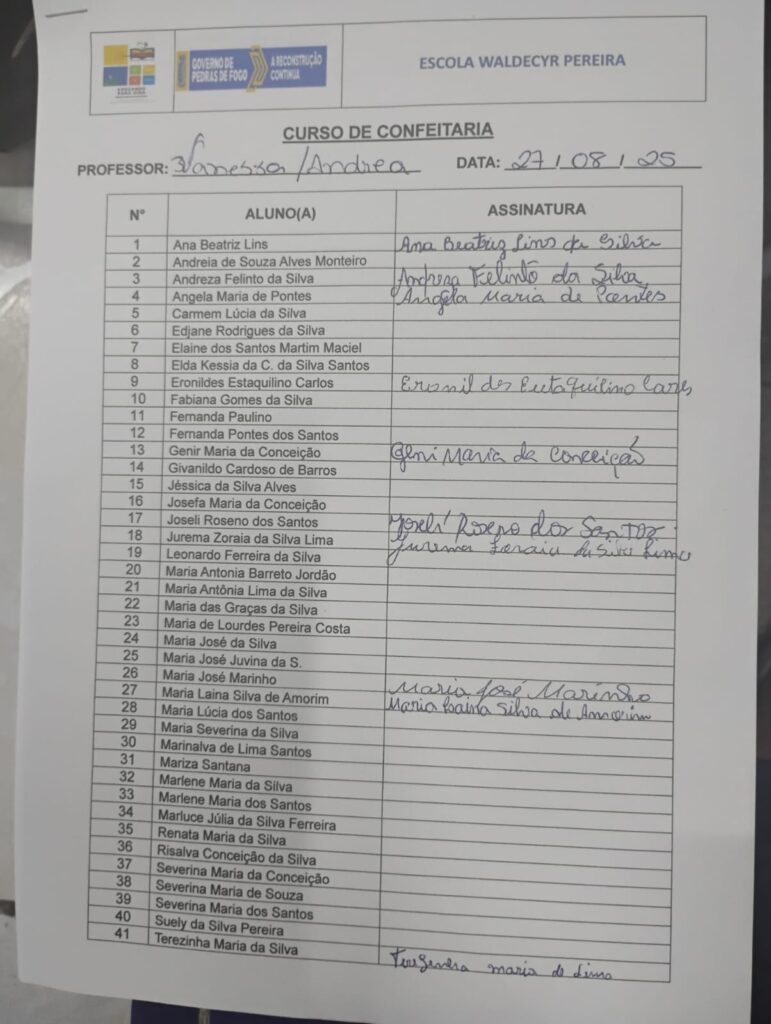 GOVERNO DE PEDRAS DE FOGO
A RECONSTRUÇÃO CONTINUA
ESCOLA WALDECYR PEREIRA
CURSO DE CONFEITARIA
PROFESSOR: Vanessa/Andrea DATA: 27/08/25
Nº ALUNO(A) ASSINATURA
1 Ana Beatriz Lins Ana Beatriz Lins da Silva
2 Andreia de Souza Alves Monteiro
3 Andreza Felinto da Silva Andreza Felinto da Silva
4 Angela Maria de Pontes Angela Maria de Pontes
5 Carmem Lúcia da Silva
6 Edjane Rodrigues da Silva
7 Elaine dos Santos Martim Maciel
8 Elda Kessia da C. da Silva Santos
9 Eronildes Estaquilino Carlos Eronil des Eutaquilino
10 Fabiana Gomes da Silva
11 Fernanda Paulino
12 Fernanda Pontes dos Santos
13 Genir Maria da Conceição Geni Maria da Conceição
14 Givanildo Cardoso de Barros
15 Jéssica da Silva Alves
16 Josefa Maria da Conceição
17 Joseli Roseno dos Santos Joseli Roseno dos Santos
18 Jurema Zoraia da Silva Lima Jurema Zoraia da Silva Lima
19 Leonardo Ferreira da Silva
20 Maria Antonia Barreto Jordão
21 Maria Antônia Lima da Silva
22 Maria das Graças da Silva
23 Maria de Lourdes Pereira Costa
24 Maria José da Silva
25 Maria José Juvina da S.
26 Maria José Marinho Maria José Marinho
27 Maria Laina Silva de Amorim Maria Laina Silva de Amorim
28 Maria Lúcia dos Santos
29 Maria Severina da Silva
30 Marinalva de Lima Santos
31 Mariza Santana
32 Marlene Maria da Silva
33 Marlene Maria dos Santos
34 Marluce Júlia da Silva Ferreira
35 Renata Maria da Silva
36 Risalva Conceição da Silva
37 Severina Maria da Conceição
38 Severina Maria de Souza
39 Severina Maria dos Santos
40 Suely da Silva Pereira
41 Terezinha Maria da Silva maria de Lima